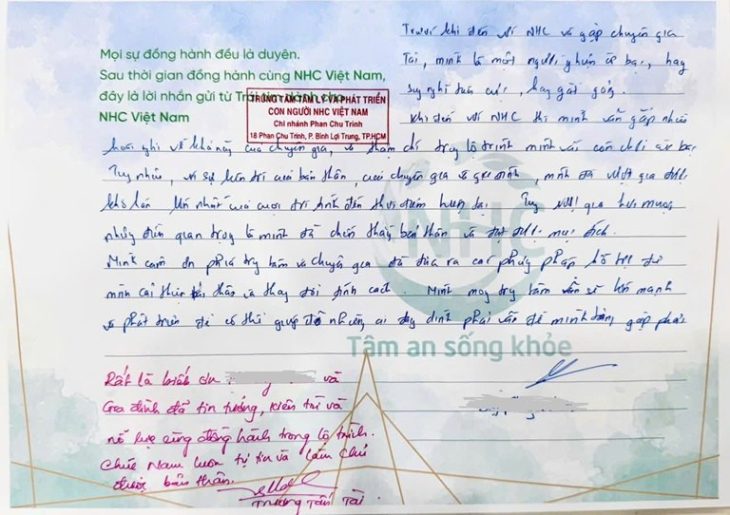 Mọi sự đồng hành đều là duyên.
Sau thời gian đồng hành cùng NHC Việt Nam,
đây là lời nhắn gửi từ Trái tim dành cho
NHC Việt Nam
TRUNG TÂM TÂM LÝ VÀ PHÁT TRIỂN
CON NGƯỜI NHC VIỆT NAM
Chi nhánh Phan Chu Trinh
18 Phan Chu Trinh, P. Bình Lợi Trung, TP.HCM
Trước khi đến với NHC và gặp chuyên gia
Tài, mình là một người nghiện cờ bạc, hay
suy nghĩ tiêu cực, hay gắt gỏng.
Khi đến với NHC thì mình vẫn gặp nhiều
hoài nghi về khả năng của chuyên gia, và thậm chí trong lộ trình mình vẫn còn chơi cờ bạc
Tuy nhiên, với sự kiên trì của bản thân, của chuyên gia và gia đình, mình đã vượt qua được
khó khăn lớn nhất của cuộc đời tính đến thời điểm hiện tại.
nhưng điều quan trọng là mình đã chiến thắng bản thân và đạt được mục đích.
Mình cảm ơn phía trung tâm và chuyên gia đã đưa ra các phương pháp hỗ trợ để
mình cải thiện bản thân và thay đổi tính cách. Mình mong trung tâm vẫn sẽ lớn mạnh
và phát triển để có thể giúp đỡ những ai đang dính phải vấn đề mình từng gặp phải
NHC
Tâm an sống khỏe
Rất là biết ơn và
Gia đình đã tin tưởng, kiên trì và
nỗ lực cùng đồng hành trong lộ trình.
Chúc Nam luôn tự tin và làm chủ
được bản thân.
Trương Tấn Tài